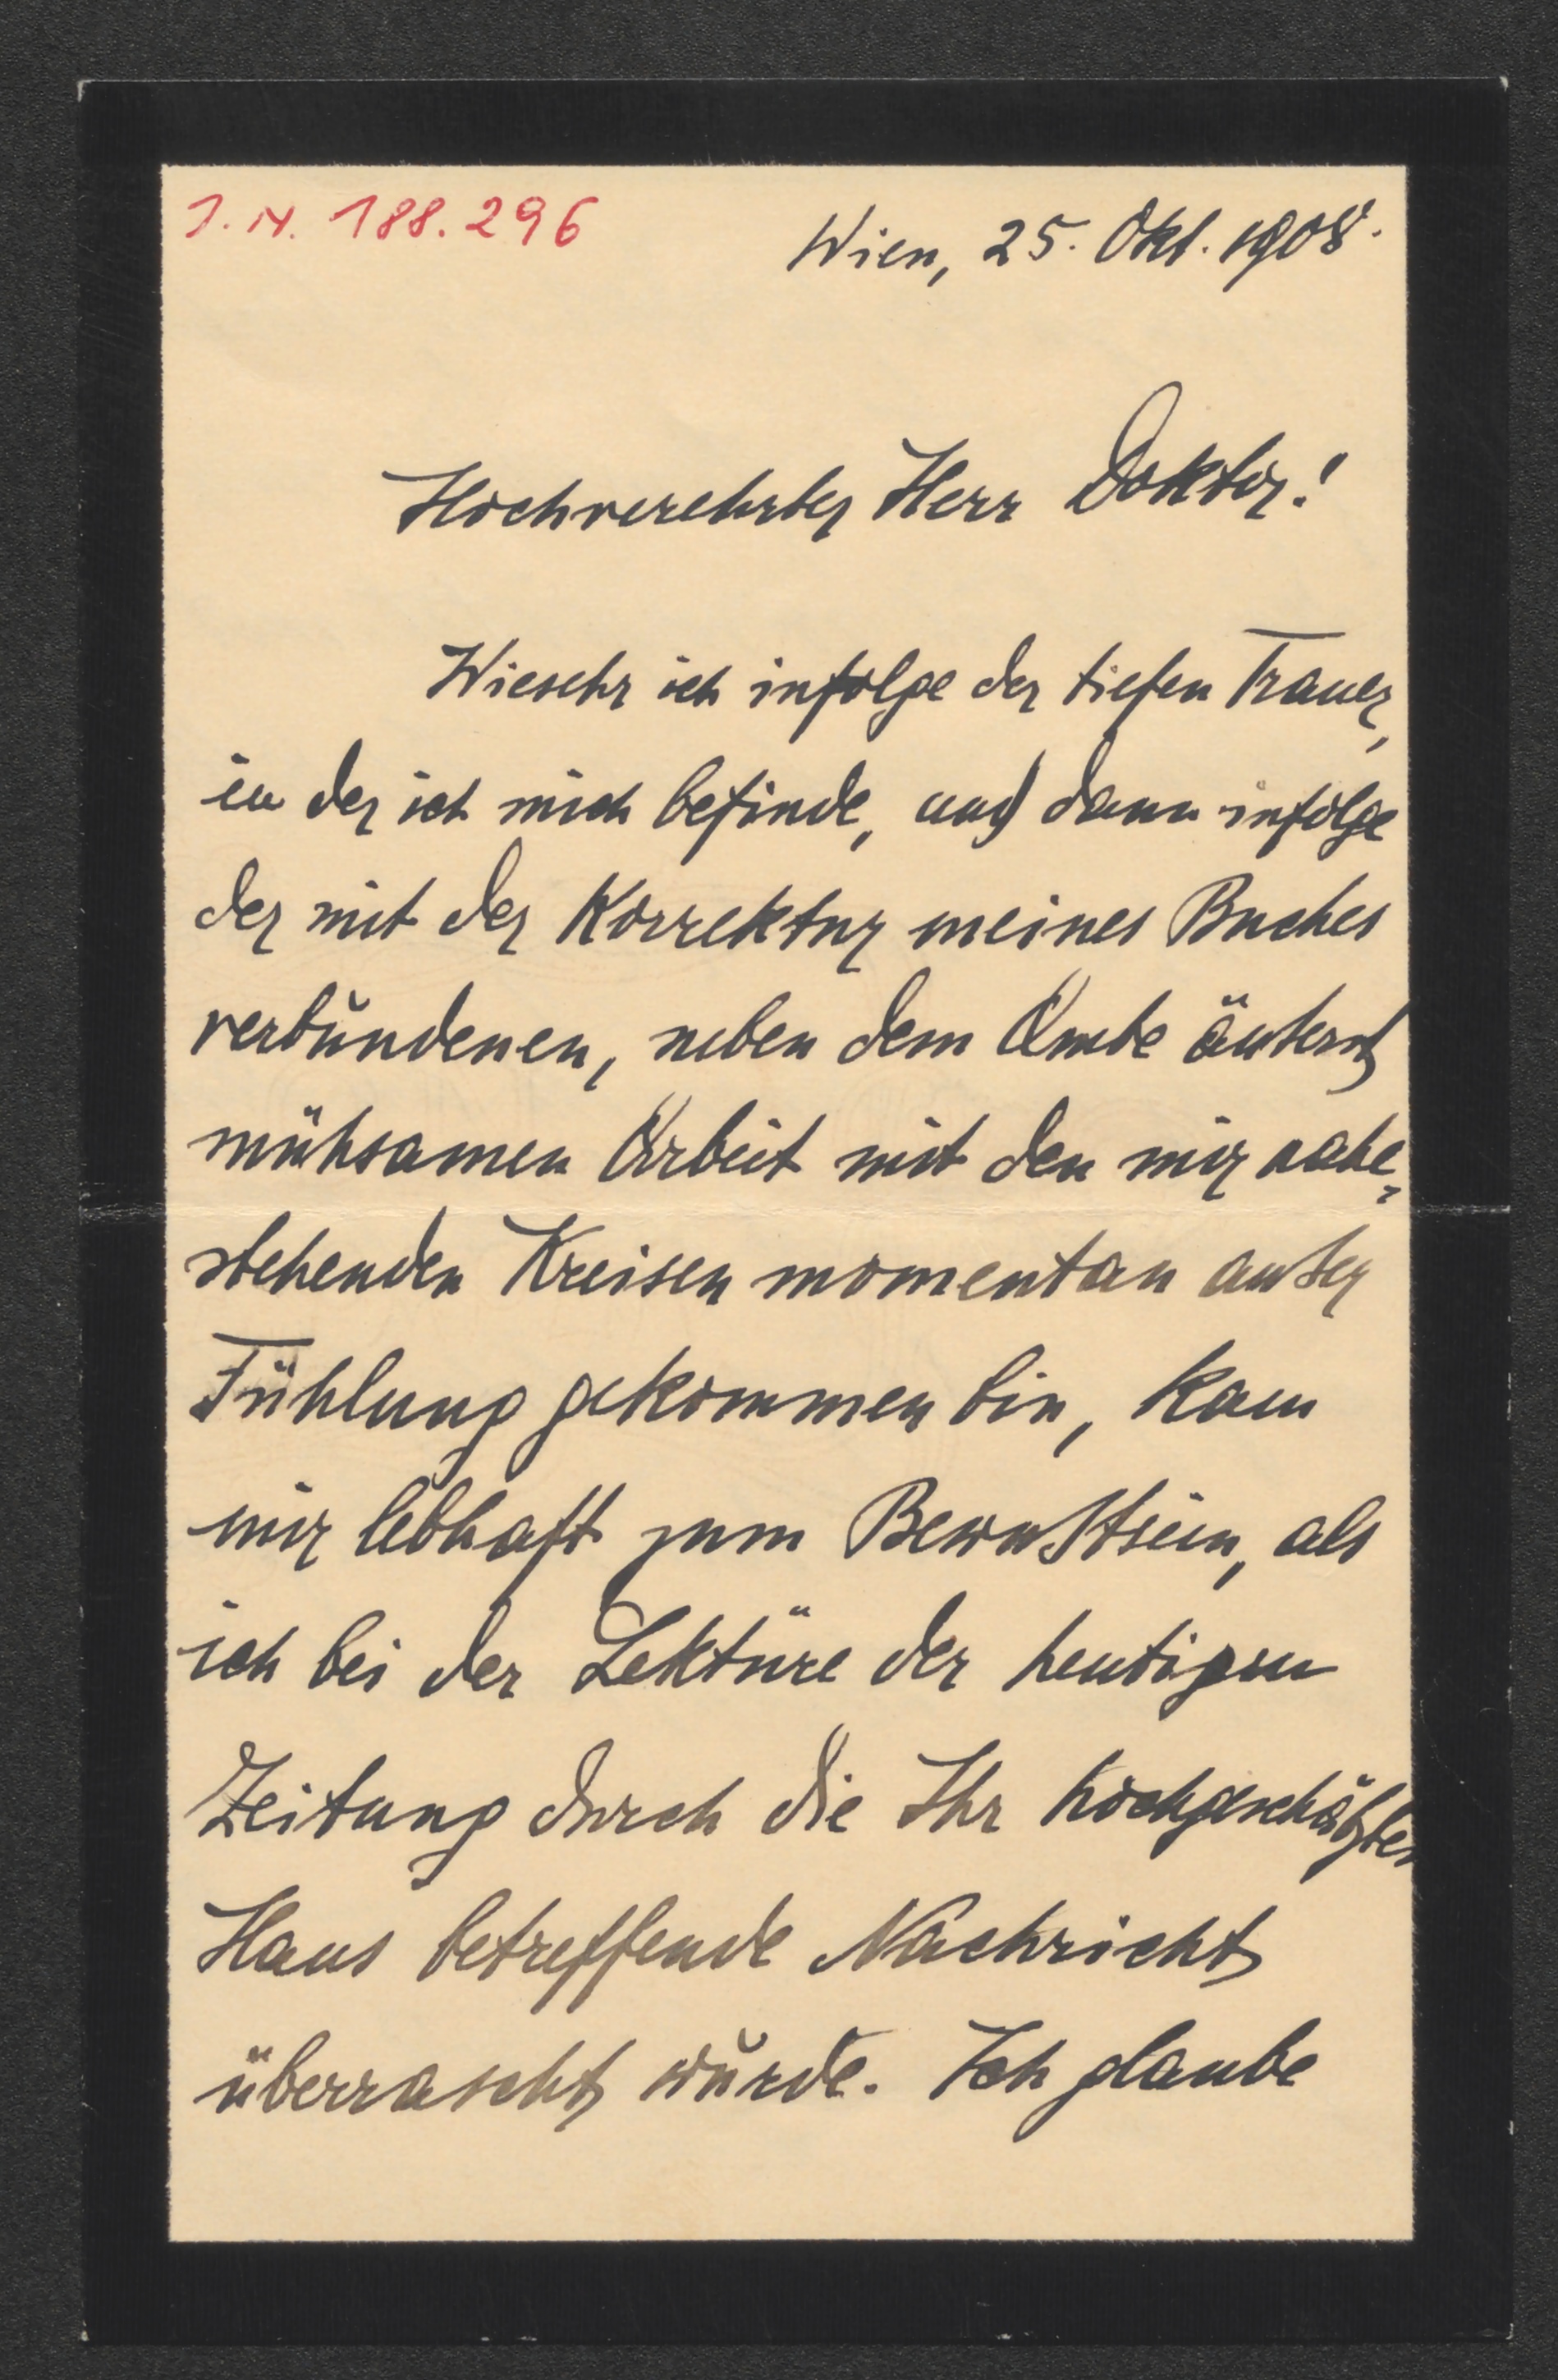 J. N. 188.296
Wien, 25. Okt. 1908.
Hochverehrter Herr Doktor!
Wiesehr ich infolge der tiefen Trauer,
in der ich mich befinde, und dann infolge
der mit der Korrektur meines Buches
verbundenen, neben dem Amte äußerst
mühsamen Arbeit mit den mir nahe-
stehenden Kreisen momentan außer
Fühlung gekommen bin, kam
mir lebhaft zum Bewußtsein, als
ich bei der Lektüre der heutigen
Zeitung durch die Ihr hochgeschätztes
Haus betreffende Nachricht
überrascht wurde. Ich glaube